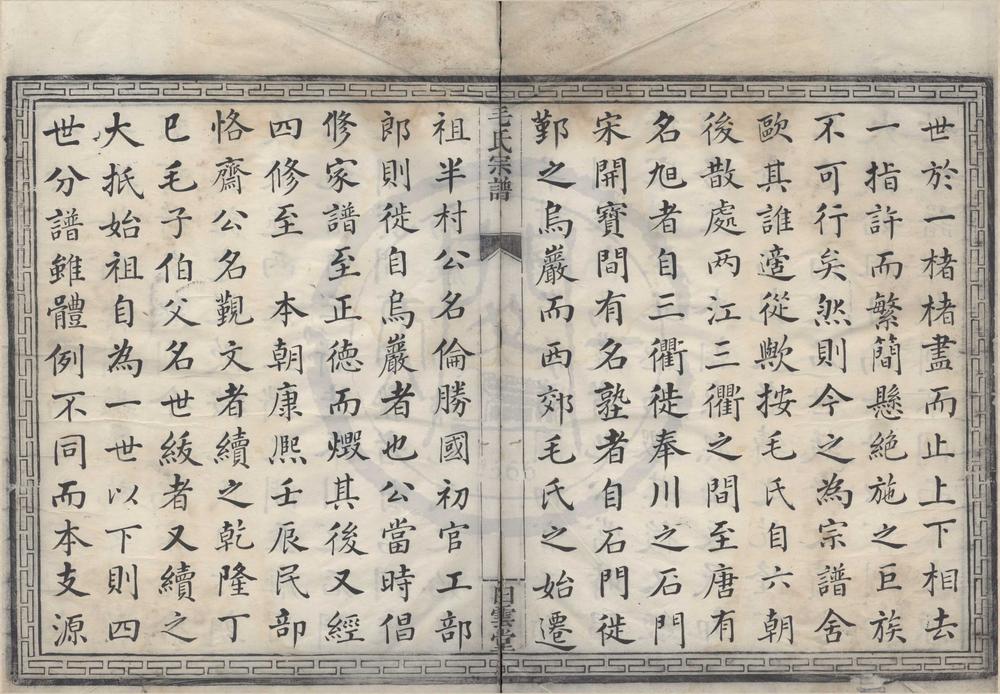 世於一楮楮盡而止上下相去
一指許而繁簡懸絶施之巨族
不可行矣然則今之為宗譜舍
歐其誰適從歟按毛氏自六朝
後散處两江三衢之間至唐有
名旭者自三衢徙奉川之石門
宋開寶間有名塾者自石門徙
鄞之烏巖而西郊毛氏之始遷
毛氏宗譜
一
白雲堂
祖半村公名倫勝國初官工部
郎則徙自烏巖者也公當時倡
修家譜至正德而燬其後又經
四修至本朝康熙壬辰民部
恪齋公名覲文者續之乾隆丁
巳毛子伯父名世緩者又續之
大抵始祖自為一世以下則四
世分譜雖體例不同而本支源